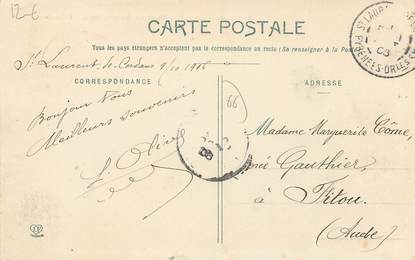 12-€
CARTE POSTALE
Tous les pays étrangers n'acceptent pas la correspondance au recto (Se renseigner à la Poste)
St Laurent-de-Cerdans 9/10 1906
CORRESPONDANCE
ADRESSE
Bonjour Vous
Meilleurs souvenirs
66
Madame Marguerite Côme,
née Gauthier,
à Fitou.
(Aude)
ST LAURENT
PYRÉNÉES-ORLES